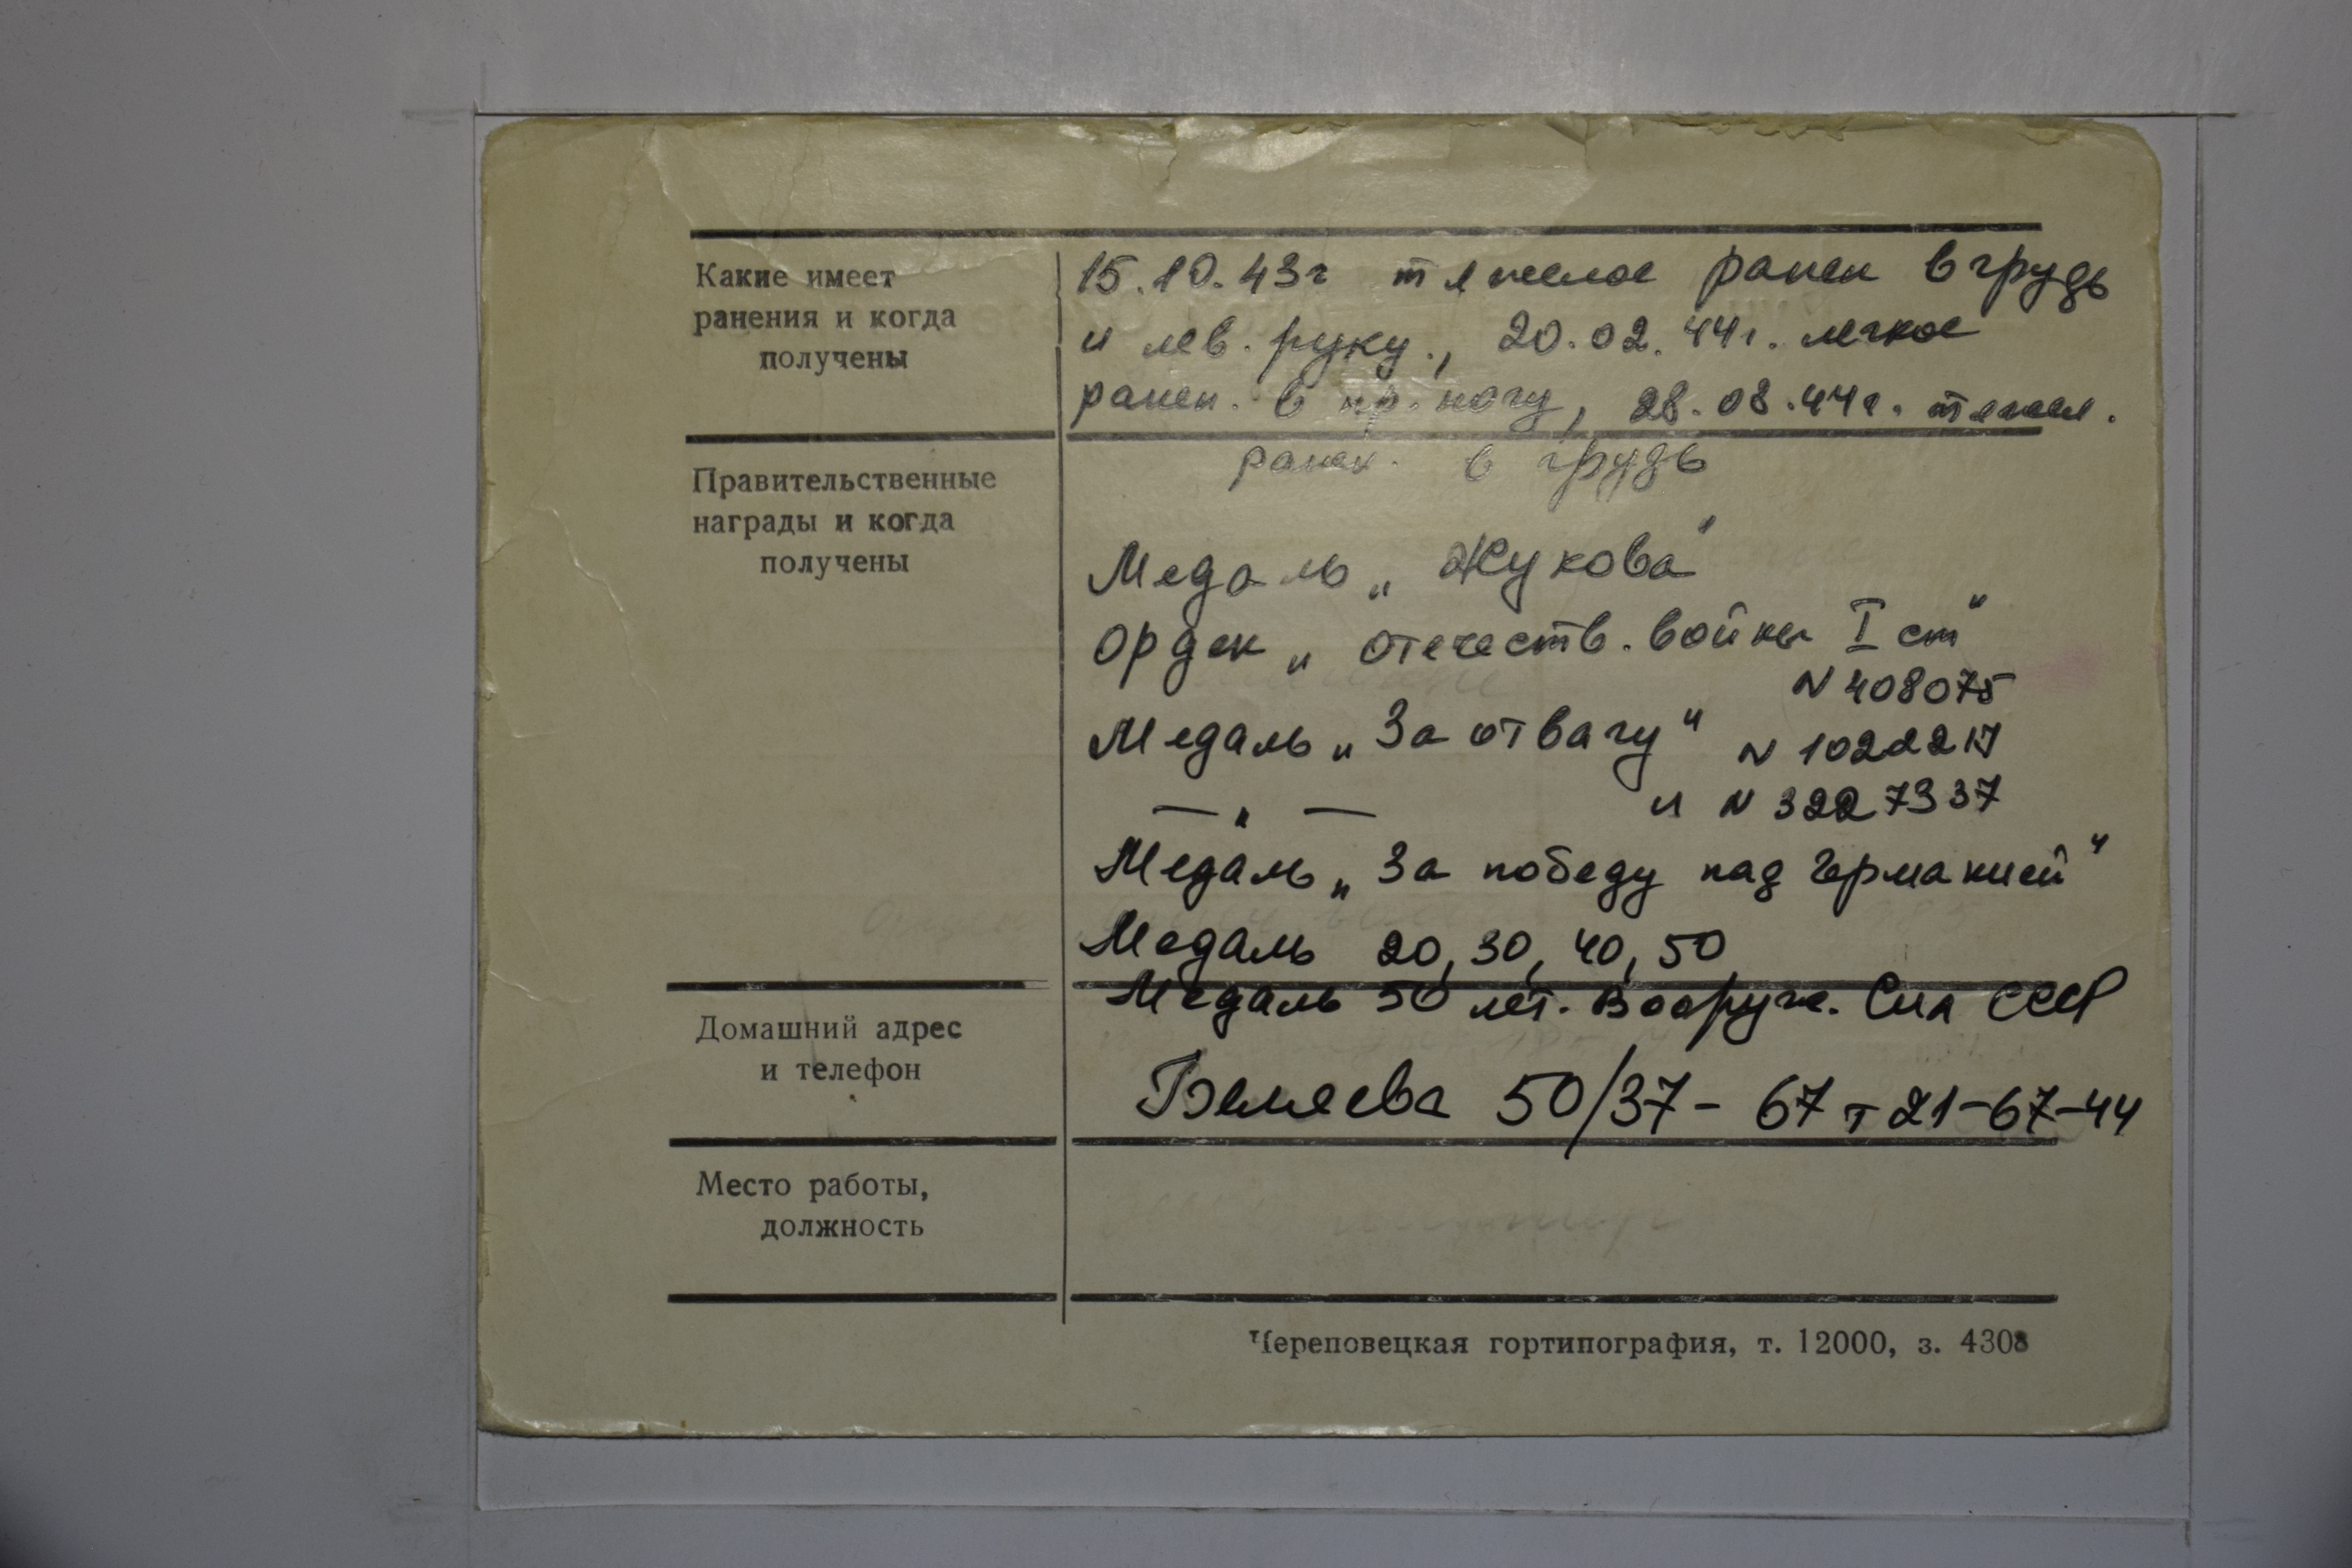 Какие имеет
ранения и когда
получены
15.10.43г тяжелое ранен в грудь
и лев. руку., 20.02.44г. легкое
ранен. в пр. ногу, 28.08.44г. тяжел.
ранен. в грудь
Правительственные
награды и когда
получены
Медаль „Жукова"
Орден „Отечеств. войны I ст"
N 408075
Медаль „За отвагу" N 1022217
— " — и N 3227337
Медаль „За победу над Германией"
Медаль 20, 30, 40, 50
Медаль 50 лет. Вооруж. Сил СССР
Домашний адрес
и телефон
Беляева 50/37 - 67 т 21-67-44
Место работы,
должность
Череповецкая гортипография, т. 12000, з. 4308